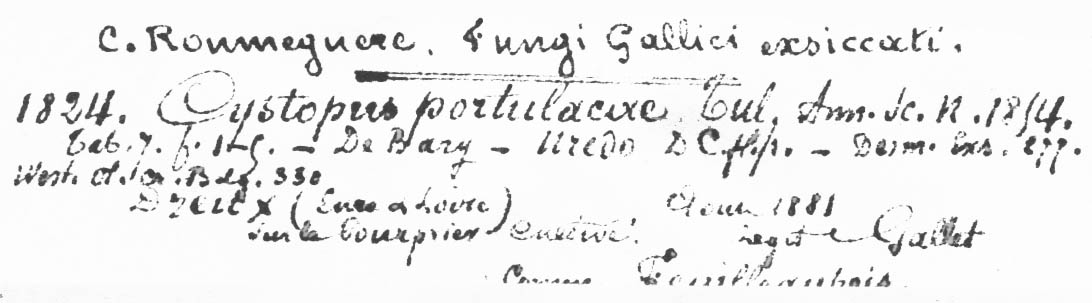 C. Roumeguere. Fungi Gallici exsiccati.
1824. Cystopus portulacae. Tul. Ann. Sc. N. 1854.
Tab. 7. f. 1-5. – De Bary – Uredo DC. fl. fr. – Desm. Exs. 277.
West. Cl. Cr. Belg. 330
Dreux (Eure & Loire) Aout 1881
sur le Pourpier Cultivé. Legit Gallet
Comm. Feuilleaubois.